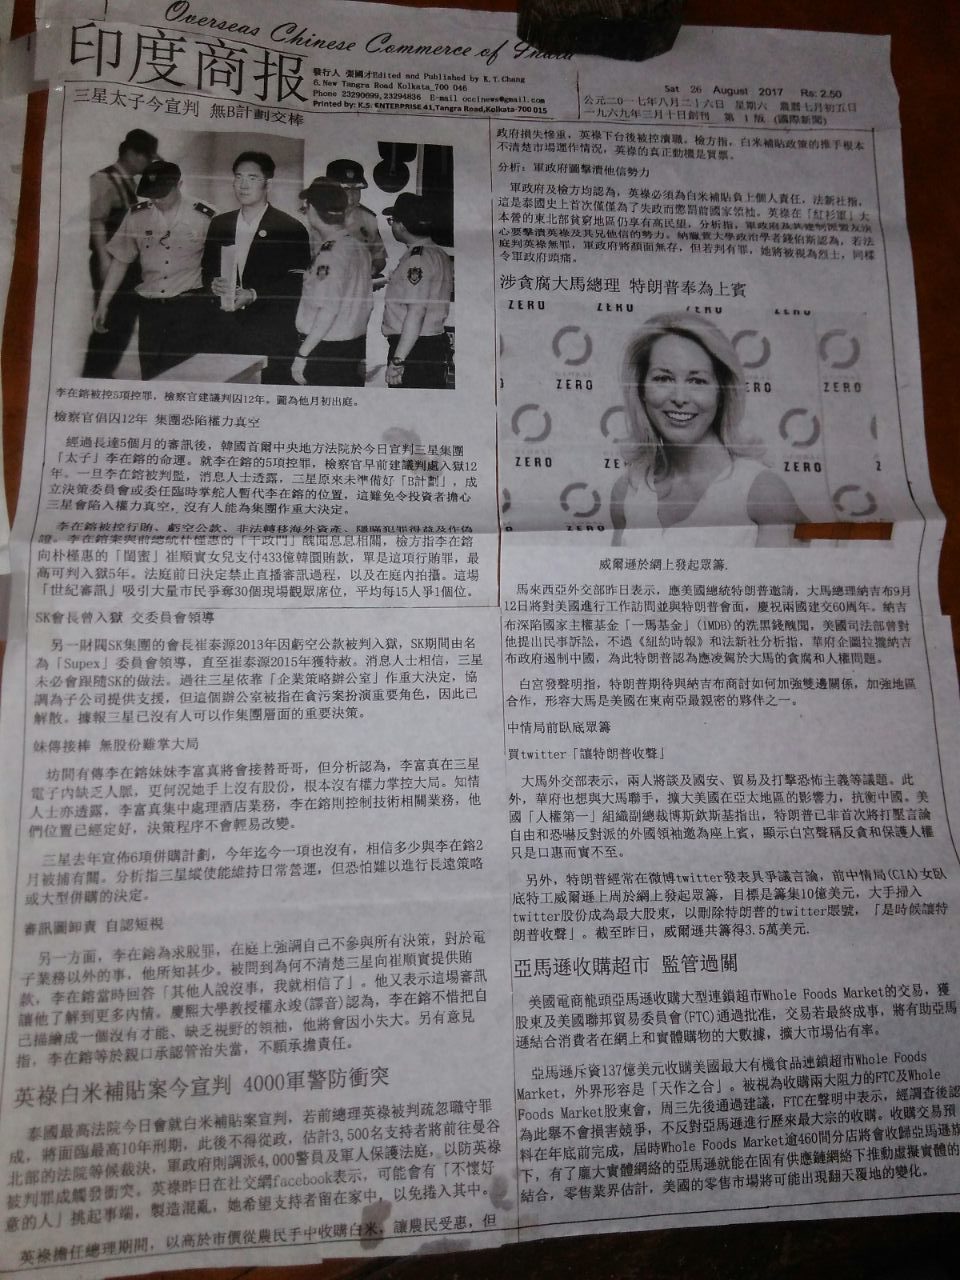 Overseas Chinese Commerce of India
印度商报
發行人 張國才Edited and Published by K.T.Chang
6, New Tangra Road Kolkata_700 046
Phone 23290699, 23294836 E-mail occinews@gmail.com
Printed by: K.S. ENTERPRISE 41,Tangra Road,Kolkata-700 015
Sat 26 August 2017 Rs: 2.50
公元二0一七年八月二十六日 星期六 農曆七月初五日
一九六九年三月十日創刊 第 1 版 (國際新聞)
三星太子今宣判 無B計劃交棒
李在鎔被控5項控罪，檢察官建議判囚12年。圖為他月初出庭。
檢察官倡囚12年 集團恐陷權力真空
經過長達5個月的審訊後，韓國首爾中央地方法院於今日宣判三星集團
「太子」李在鎔的命運。就李在鎔的5項控罪，檢察官早前建議判處入獄12
年。一旦李在鎔被判監，消息人士透露，三星原來未準備好「B計劃」，成
立決策委員會或委任臨時掌舵人暫代李在鎔的位置，這難免令投資者擔心
三星會陷入權力真空，沒有人能為集團作重大決定。
李在鎔被控行賄、虧空公款、非法轉移海外資產、隱瞞犯罪得益及作偽
證。李在鎔案與前總統朴槿惠的「干政門」醜聞息息相關，檢方指李在鎔
向朴槿惠的「閨蜜」崔順實女兒支付433億韓圜賄款，單是這項行賄罪，最
高可判入獄5年。法庭前日決定禁止直播審訊過程，以及在庭內拍攝。這場
「世紀審訊」吸引大量市民爭奪30個現場觀眾席位，平均每15人爭1個位。
SK會長曾入獄 交委員會領導
另一財閥SK集團的會長崔泰源2013年因虧空公款被判入獄，SK期間由名
為「Supex」委員會領導，直至崔泰源2015年獲特赦。消息人士相信，三星
未必會跟隨SK的做法。過往三星依靠「企業策略辦公室」作重大決定，協
調為子公司提供支援，但這個辦公室被指在貪污案扮演重要角色，因此已
解散。據報三星已沒有人可以作集團層面的重要決策。
妹傳接棒 無股份難掌大局
坊間有傳李在鎔妹妹李富真將會接替哥哥，但分析認為，李富真在三星
電子內缺乏人脈，更何況她手上沒有股份，根本沒有權力掌控大局。知情
人士亦透露，李富真集中處理酒店業務，李在鎔則控制技術相關業務，他
們位置已經定好，決策程序不會輕易改變。
三星去年宣佈6項併購計劃，今年迄今一項也沒有，相信多少與李在鎔2
月被捕有關。分析指三星縱使能維持日常營運，但恐怕難以進行長遠策略
或大型併購的決定。
審訊圖卸責 自認短視
另一方面，李在鎔為求脫罪，在庭上強調自己不參與所有決策，對於電
子業務以外的事，他所知甚少。被問到為何不清楚三星向崔順實提供賄
款，李在鎔當時回答「其他人說沒事，我就相信了」。他又表示這場審訊
讓他了解到更多內情。慶熙大學教授權永竣(譯音)認為，李在鎔不惜把自
己描繪成一個沒有才能、缺乏視野的領袖，他將會因小失大。另有意見
指，李在鎔等於親口承認管治失當，不願承擔責任。
英祿白米補貼案今宣判 4000軍警防衝突
泰國最高法院今日會就白米補貼案宣判，若前總理英祿被判疏忽職守罪
成，將面臨最高10年刑期，此後不得從政，估計3,500名支持者將前往曼谷
北部的法院等候裁決，軍政府則調派4,000警員及軍人保護法庭，以防英祿
被判罪成觸發衝突。英祿昨日在社交網facebook表示，可能會有「不懷好
意的人」挑起事端，製造混亂，她希望支持者留在家中，以免捲入其中。
英祿擔任總理期間，以高於市價從農民手中收購白米，讓農民受惠，但
政府損失慘重，英祿下台後被控瀆職。檢方指，白米補貼政策的推手根本
不清楚市場運作情況，英祿的真正動機是買票。
分析：軍政府圖擊潰他信勢力
軍政府及檢方均認為，英祿必須為白米補貼負上個人責任，法新社指，
這是泰國史上首次僅僅為了失政而懲罰前國家領袖。英祿在「紅衫軍」大
本營的東北部貧窮地區仍享有高民望，分析指，軍政府及其建制派盟友決
心要擊潰英祿及其兄他信的勢力。納瑞萱大學政治學者錢伯斯認為，若法
庭判英祿無罪，軍政府將顏面無存，但若判有罪，她將被視為烈士，同樣
令軍政府頭痛。
涉貪腐大馬總理 特朗普奉為上賓
ZERO ZERO ZERO ZERO
ZERO ZERO
ZERO ZERO
威爾遜於網上發起眾籌.
馬來西亞外交部昨日表示，應美國總統特朗普邀請，大馬總理納吉布9月
12日將對美國進行工作訪問並與特朗普會面，慶祝兩國建交60周年。納吉
布深陷國家主權基金「一馬基金」(iMDB)的洗黑錢醜聞，美國司法部曾對
他提出民事訴訟，不過《紐約時報》和法新社分析指，華府企圖拉攏納吉
布政府遏制中國，為此特朗普認為應凌駕於大馬的貪腐和人權問題。
白宮發聲明指，特朗普期待與納吉布商討如何加強雙邊關係，加強地區
合作，形容大馬是美國在東南亞最親密的夥伴之一。
中情局前臥底眾籌
買twitter「讓特朗普收聲」
大馬外交部表示，兩人將談及國安、貿易及打擊恐怖主義等議題。此
外，華府也想與大馬聯手，擴大美國在亞太地區的影響力，抗衡中國。美
國「人權第一」組織副總裁博斯欽斯基指出，特朗普已非首次將打壓言論
自由和恐嚇反對派的外國領袖邀為座上賓，顯示白宮聲稱反貪和保護人權
只是口惠而實不至。
另外，特朗普經常在微博twitter發表具爭議言論，前中情局(CIA)女臥
底特工威爾遜上周於網上發起眾籌，目標是籌集10億美元，大手掃入
twitter股份成為最大股東，以刪除特朗普的twitter賬號，「是時候讓特
朗普收聲」。截至昨日，威爾遜共籌得3.5萬美元.
亞馬遜收購超市 監管過關
美國電商龍頭亞馬遜收購大型連鎖超市Whole Foods Market的交易，獲
股東及美國聯邦貿易委員會(FTC)通過批准，交易若最終成事，將有助亞馬
遜結合消費者在網上和實體購物的大數據，擴大市場佔有率。
亞馬遜斥資137億美元收購美國最大有機食品連鎖超市Whole Foods
Market，外界形容是「天作之合」。被視為收購兩大阻力的FTC及Whole
Foods Market股東會，周三先後通過建議，FTC在聲明中表示，經調查後認
為此舉不會損害競爭，不反對亞馬遜進行歷來最大宗的收購。收購交易預
料在年底前完成，屆時Whole Foods Market逾460間分店將會收歸亞馬遜旗
下，有了龐大實體網絡的亞馬遜就能在固有供應鏈網絡下推動虛擬實體的
結合，零售業界估計，美國的零售市場將可能出現翻天覆地的變化。